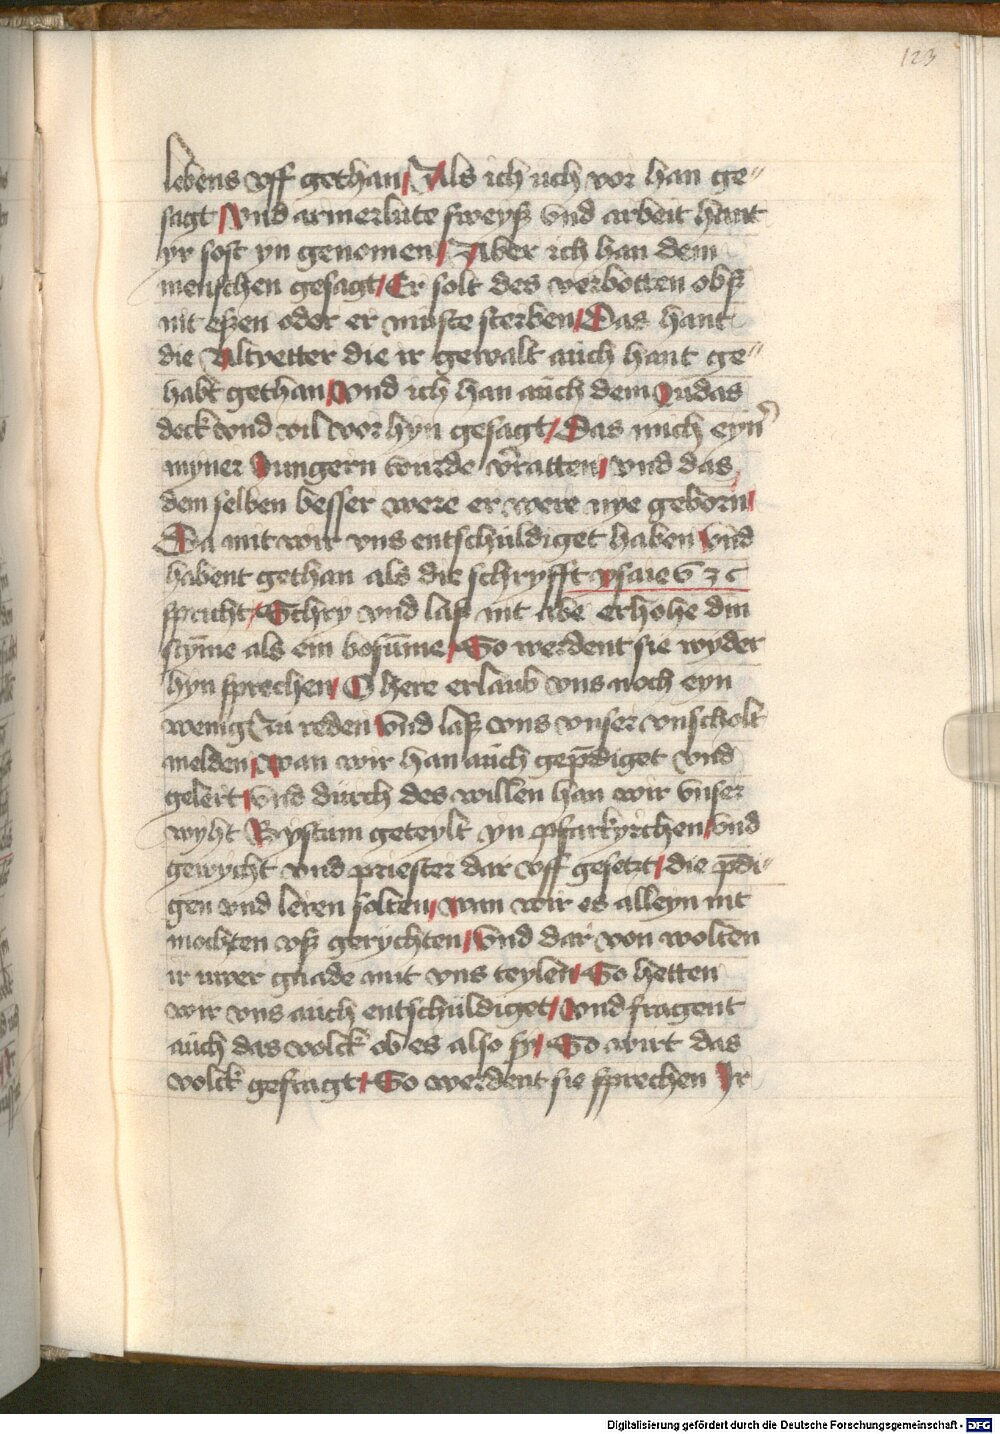 123
lebens vff gethan / Als ich uch vor han ge"
sagt / Vnd armerlute sweyß vnd arbeit hant
yr sost yn genomen / Aber ich han dem
menschen gesagt / Er solt des verbotten obß
nit eßen oder er muste sterben / Das hant
die Altvetter die ir gewalt auch hant ge"
habt gethan / Vnd ich han auch dem Judas
dick vnd vil vor hyn gesagt / Das mich eyner
myner Jungern wurde v̓ratten / vnd das
dem selben besser were er were nye geborn /
Da mit wir vns entschuldiget haben Vnd
habent gethan als die schryfft ysaie
spricht / Schry vnd laß nit abe erhohe din
stym̄e als ein bosūme / So werdent sie wyder
hyn sprechen / O here erlaub vns noch eyn
wenig zu reden Vnd laß vns vnser vnscholt
melden / Wan wir han auch gep̄diget vnd
gelert / Vnd durch des willen han wir vnser
wyht Bystum geteylt yn pfarkyrchen / Vnd
gewycht vnd priester dar vff gesetzt / die p̄di"
gen vnd leren solten / Wan wir es alleyn nit
mochten vß gerychten / Vnd dar von wolten
ir uwer gnade mit vns teylen / So hetten
wir vns auch entschuldiget / Vnd fragent
auch das volck ob es also sy / So wirt das
volck gefragt / So werdent sie sprechen Ir
Digitalisierung gefördert durch die Deutsche Forschungsgemeinschaft - DFG